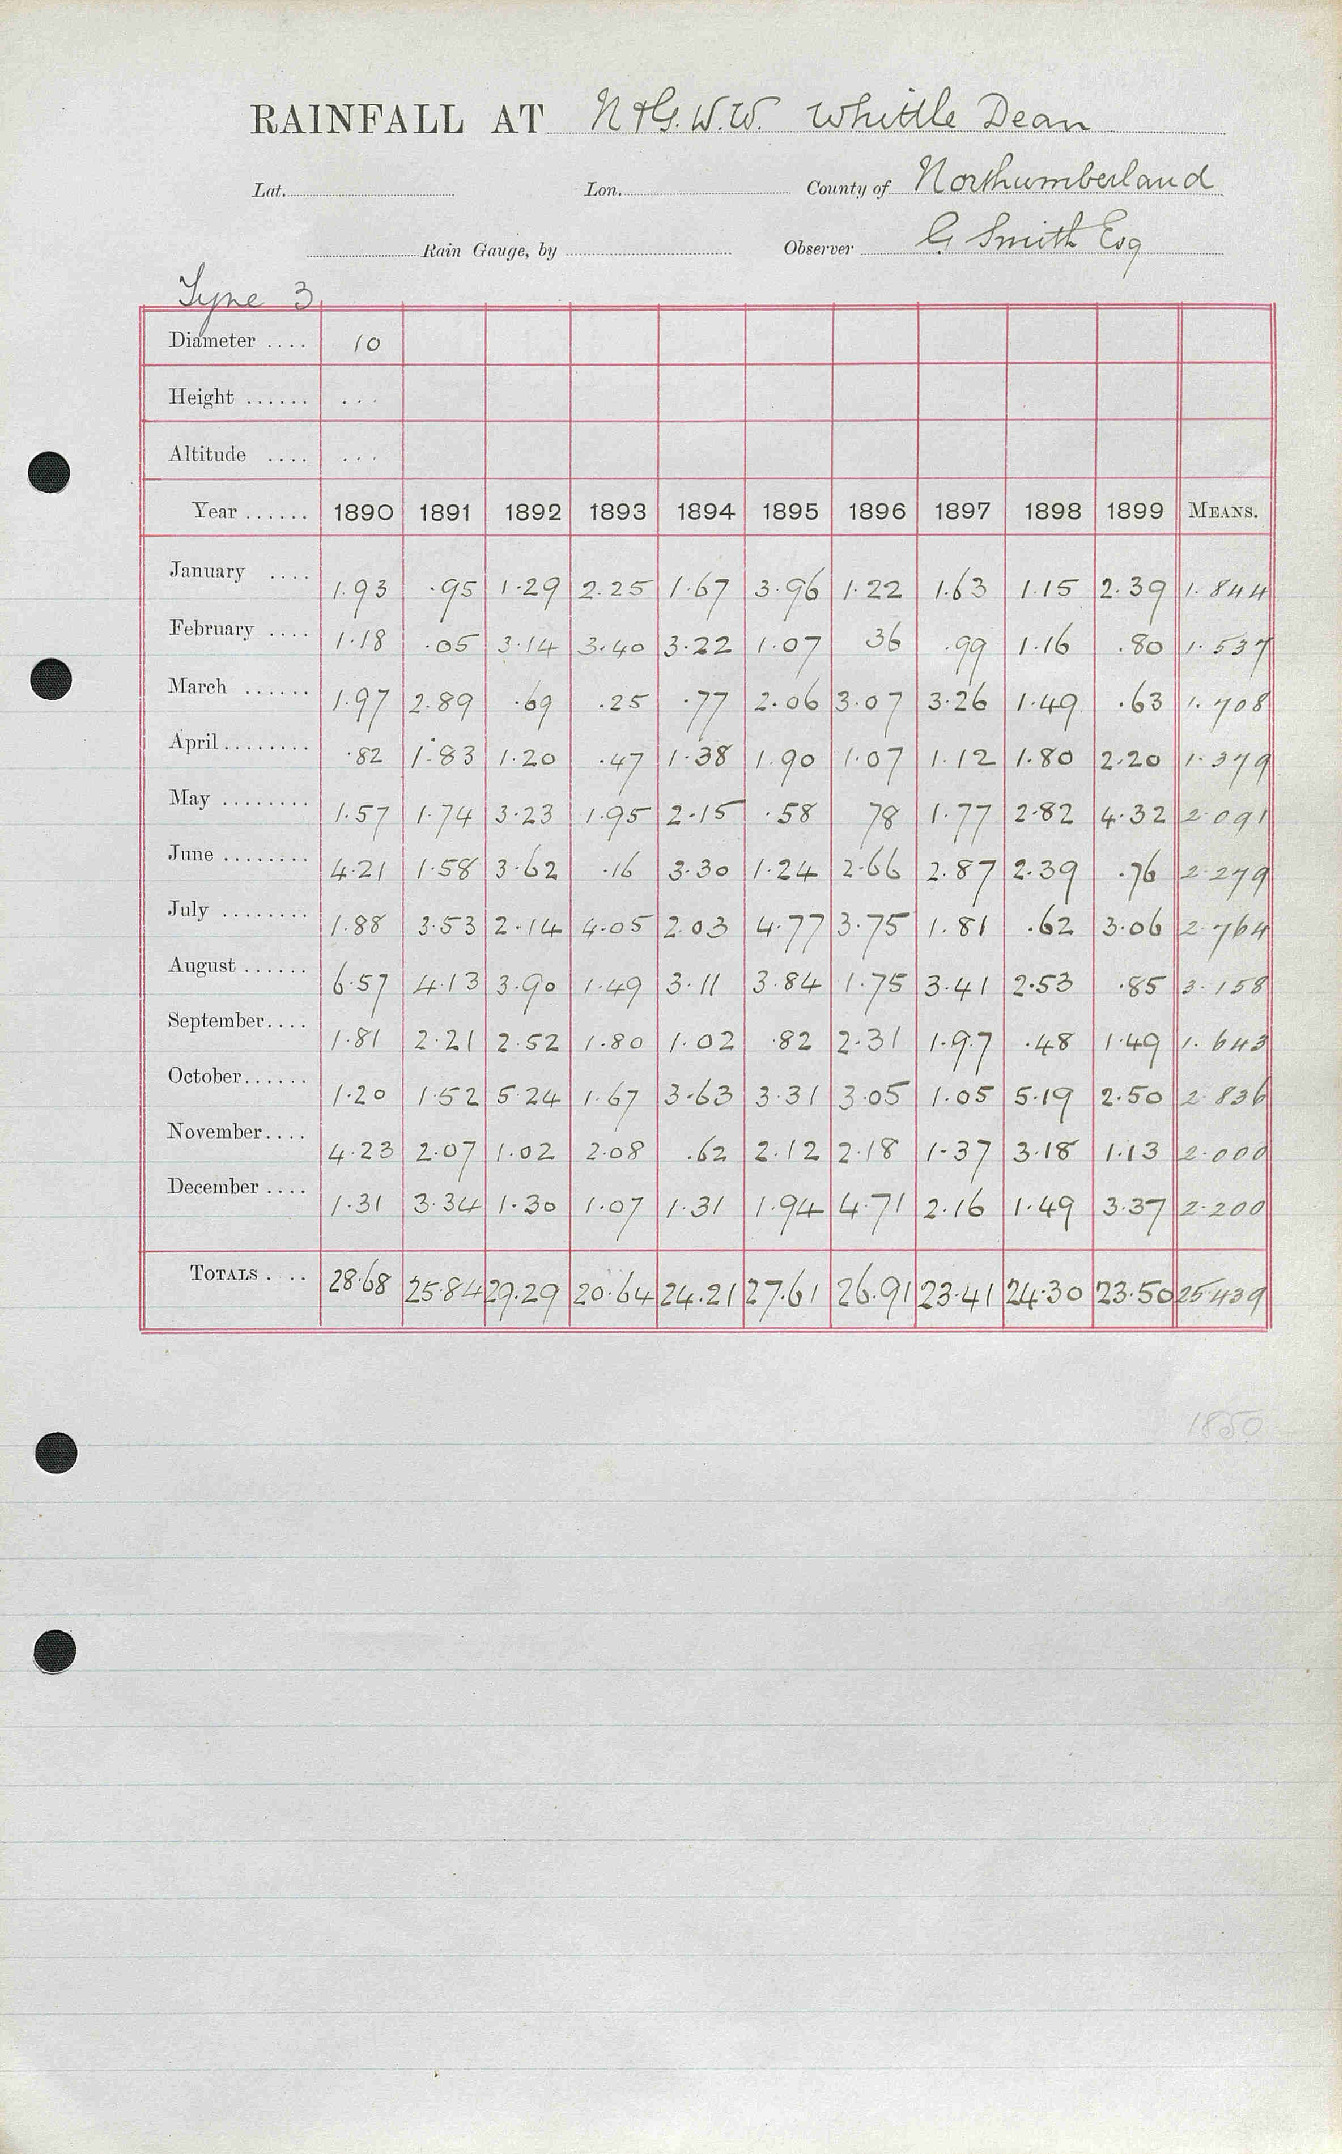 RAINFALL AT N & G. W. W. Whittle Dean
Lat. Lon. County of Northumberland
Rain Gauge, by Observer G Smith Esq
Tyne 3
Diameter .... 10
Height ...... ...
Altitude .... ...
Year ...... 1890 1891 1892 1893 1894 1895 1896 1897 1898 1899 MEANS.
January .... 1.93 .95 1.29 2.25 1.67 3.96 1.22 1.63 1.15 2.39 1.844
February .... 1.18 .05 3.14 3.40 3.22 1.07 36 .99 1.16 .80 1.537
March ...... 1.97 2.89 .69 .25 .77 2.06 3.07 3.26 1.49 .63 1.708
April ........ .82 1.83 1.20 .47 1.38 1.90 1.07 1.12 1.80 2.20 1.379
May ........ 1.57 1.74 3.23 1.95 2.15 .58 78 1.77 2.82 4.32 2.091
June ........ 4.21 1.58 3.62 .16 3.30 1.24 2.66 2.87 2.39 .76 2.279
July ........ 1.88 3.53 2.14 4.05 2.03 4.77 3.75 1.81 .62 3.06 2.764
August ...... 6.57 4.13 3.90 1.49 3.11 3.84 1.75 3.41 2.53 .85 3.158
September .... 1.81 2.21 2.52 1.80 1.02 .82 2.31 1.97 .48 1.49 1.643
October ...... 1.20 1.52 5.24 1.67 3.63 3.31 3.05 1.05 5.19 2.50 2.836
November .... 4.23 2.07 1.02 2.08 .62 2.12 2.18 1.37 3.18 1.13 2.000
December .... 1.31 3.34 1.30 1.07 1.31 1.94 4.71 2.16 1.49 3.37 2.200
TOTALS . .. 28.68 25.84 29.29 20.64 24.21 27.61 26.91 23.41 24.30 23.50 25.439
1850